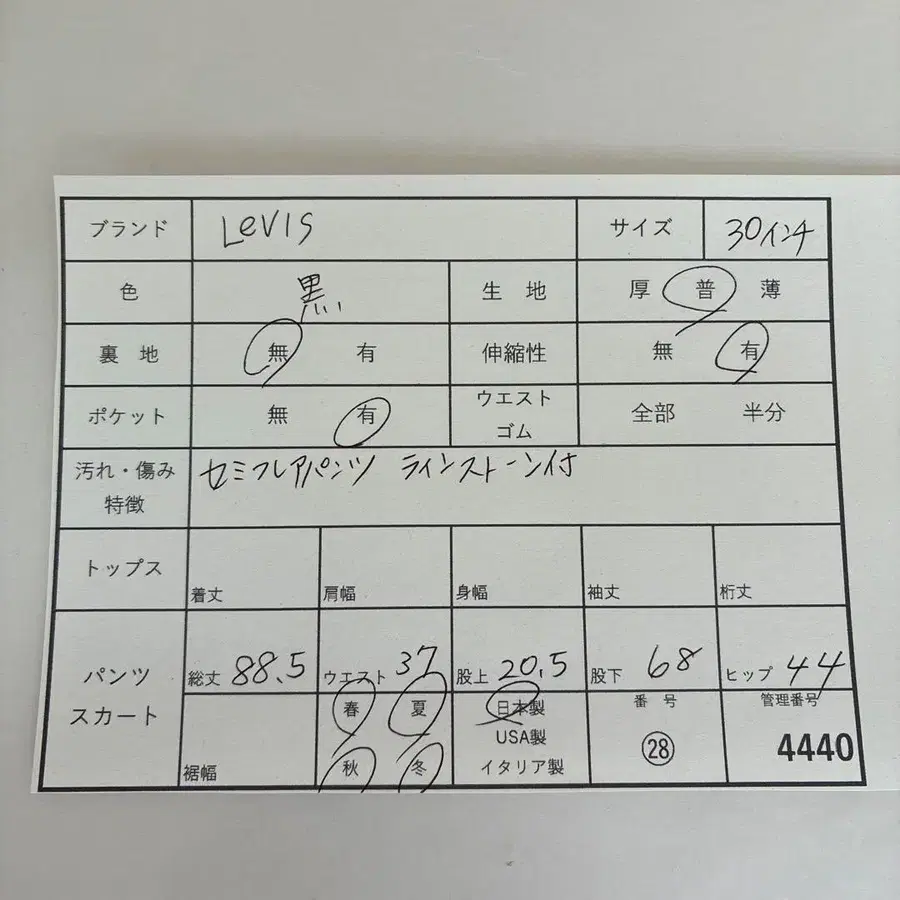 ブランド Levis サイズ 30インチ
色 黒 生地 厚 普 薄
裏地 無 有 伸縮性 無 有
ポケット 無 有 ウエスト
ゴム 全部 半分
汚れ・傷み
特徴 セミフレアパンツ ラインストーン付
トップス 着丈 肩幅 身幅 袖丈 裄丈
パンツ
スカート 総丈 88.5 ウエスト 37 股上 20.5 股下 68 ヒップ 44
裾幅 春 夏
秋 冬
日本製
USA製
イタリア製
番号
28
管理番号
4440